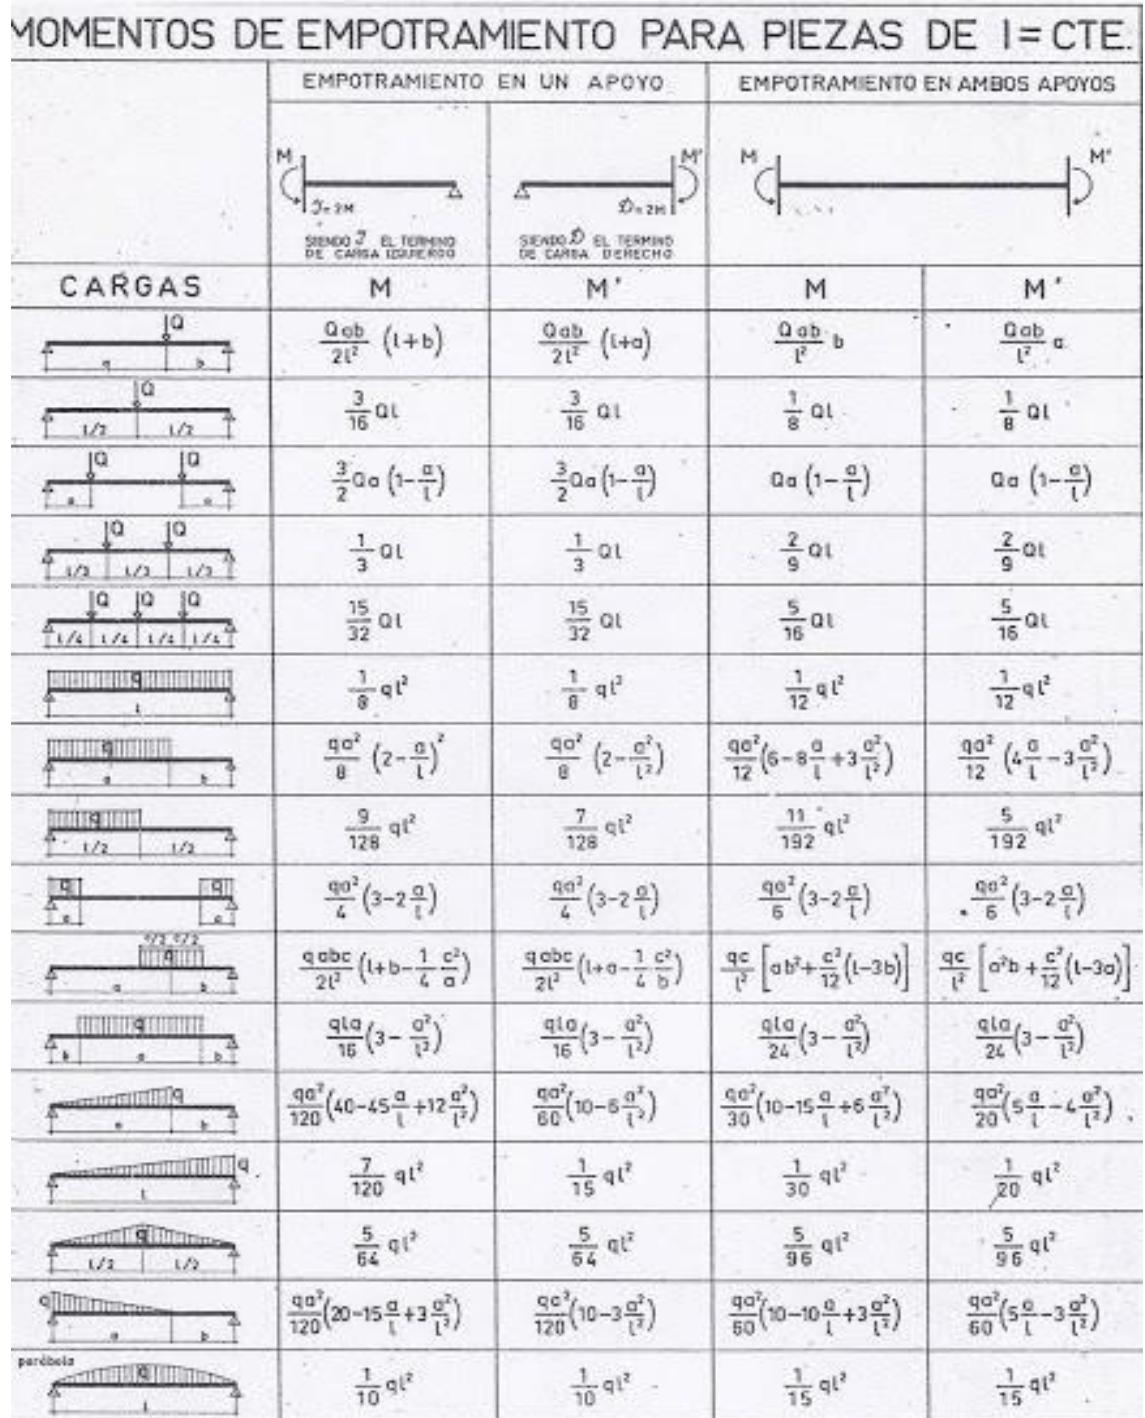 MOMENTOS DE EMPOTRAMIENTO PARA PIEZAS DE I = CTE.
EMPOTRAMIENTO EN UN APOYO EMPOTRAMIENTO EN AMBOS APOYOS
M M' M M'
I = 2M D = 2M
SIENDO I EL TERMINO DE CARGA IZQUIERDO SIENDO D EL TERMINO DE CARGA DERECHO
CARGAS M M' M M'
Q a b Qab/2l² (l+b) Qab/2l² (l+a) Qab/l² b Qab/l² a
Q l/2 l/2 3/16 Ql 3/16 Ql 1/8 Ql 1/8 Ql
Q Q a a 3/2 Qa (1-a/l) 3/2 Qa (1-a/l) Qa (1-a/l) Qa (1-a/l)
Q Q l/3 l/3 l/3 1/3 Ql 1/3 Ql 2/9 Ql 2/9 Ql
Q Q Q l/4 l/4 l/4 l/4 15/32 Ql 15/32 Ql 5/16 Ql 5/16 Ql
q l 1/8 ql² 1/8 ql² 1/12 ql² 1/12 ql²
q a b qa²/8 (2-a/l)² qa²/8 (2-a²/l²) qa²/12 (6-8a/l+3a²/l²) qa²/12 (4a/l-3a²/l²)
q l/2 l/2 9/128 ql² 7/128 ql² 11/192 ql² 5/192 ql²
q q a a qa²/4 (3-2a/l) qa²/4 (3-2a/l) qa²/6 (3-2a/l) qa²/6 (3-2a/l)
c/2 c/2 q a b qabc/2l² (l+b-1/4 c²/a) qabc/2l² (l+a-1/4 c²/b) qc/l² [ab²+c²/12(l-3b)] qc/l² [a²b+c²/12(l-3a)]
q b a b qla/16 (3-a²/l²) qla/16 (3-a²/l²) qla/24 (3-a²/l²) qla/24 (3-a²/l²)
q a b qa²/120 (40-45a/l+12a²/l²) qa²/60 (10-6a²/l²) qa²/30 (10-15a/l+6a²/l²) qa²/20 (5a/l-4a²/l²)
q l 7/120 ql² 1/15 ql² 1/30 ql² 1/20 ql²
q l/2 l/2 5/64 ql² 5/64 ql² 5/96 ql² 5/96 ql²
q a b qa²/120 (20-15a/l+3a²/l²) qa²/120 (10-3a²/l²) qa²/60 (10-10a/l+3a²/l²) qa²/60 (5a/l-3a²/l²)
parábola q l 1/10 ql² 1/10 ql² 1/15 ql² 1/15 ql²